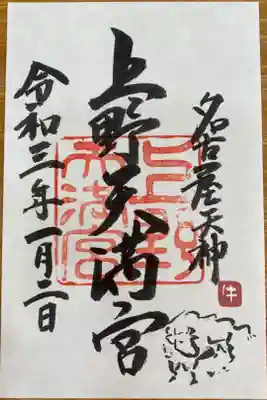 名古屋天神
牛
上野天満宮
上野天満宮
令和三年一月二日